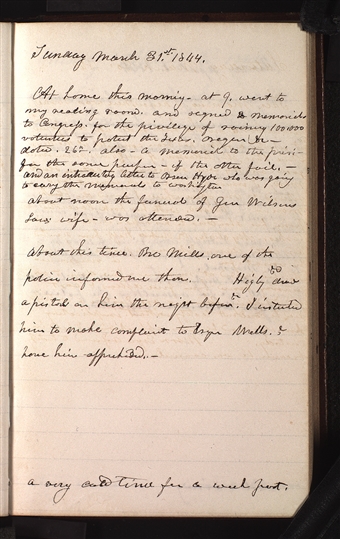 Sunday March 31st. 1844.
At home this morning- at 9. went to
my reading room. and signed memorials
to Congress. for the privilege of raising 100,000
volunteers to protect Texas. Oregon &c-
dated. 26th also- a memorial to the Presi-
for the same purpose- if the other fail.-
and an introductory letter to Orson Hyde who was going
to carry the memorials to Washington
about noon the funeral of Gen Wilson
Laws wife- was attended.-
About this time. Mills, one of the
police informed me that Higby drew
a pistol on him the night before. I instructed
him to make complaint to Esqr Wells. &
have him apprehd.-
a very cold time for a week past.